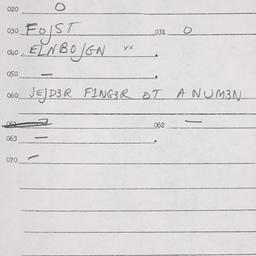 020 O
030 FOJST 031 O
040 ELNBOJGN xx
050 —
060 JEJD3R F1NG3R OT A NUM3N
062 —
063 —
070 —